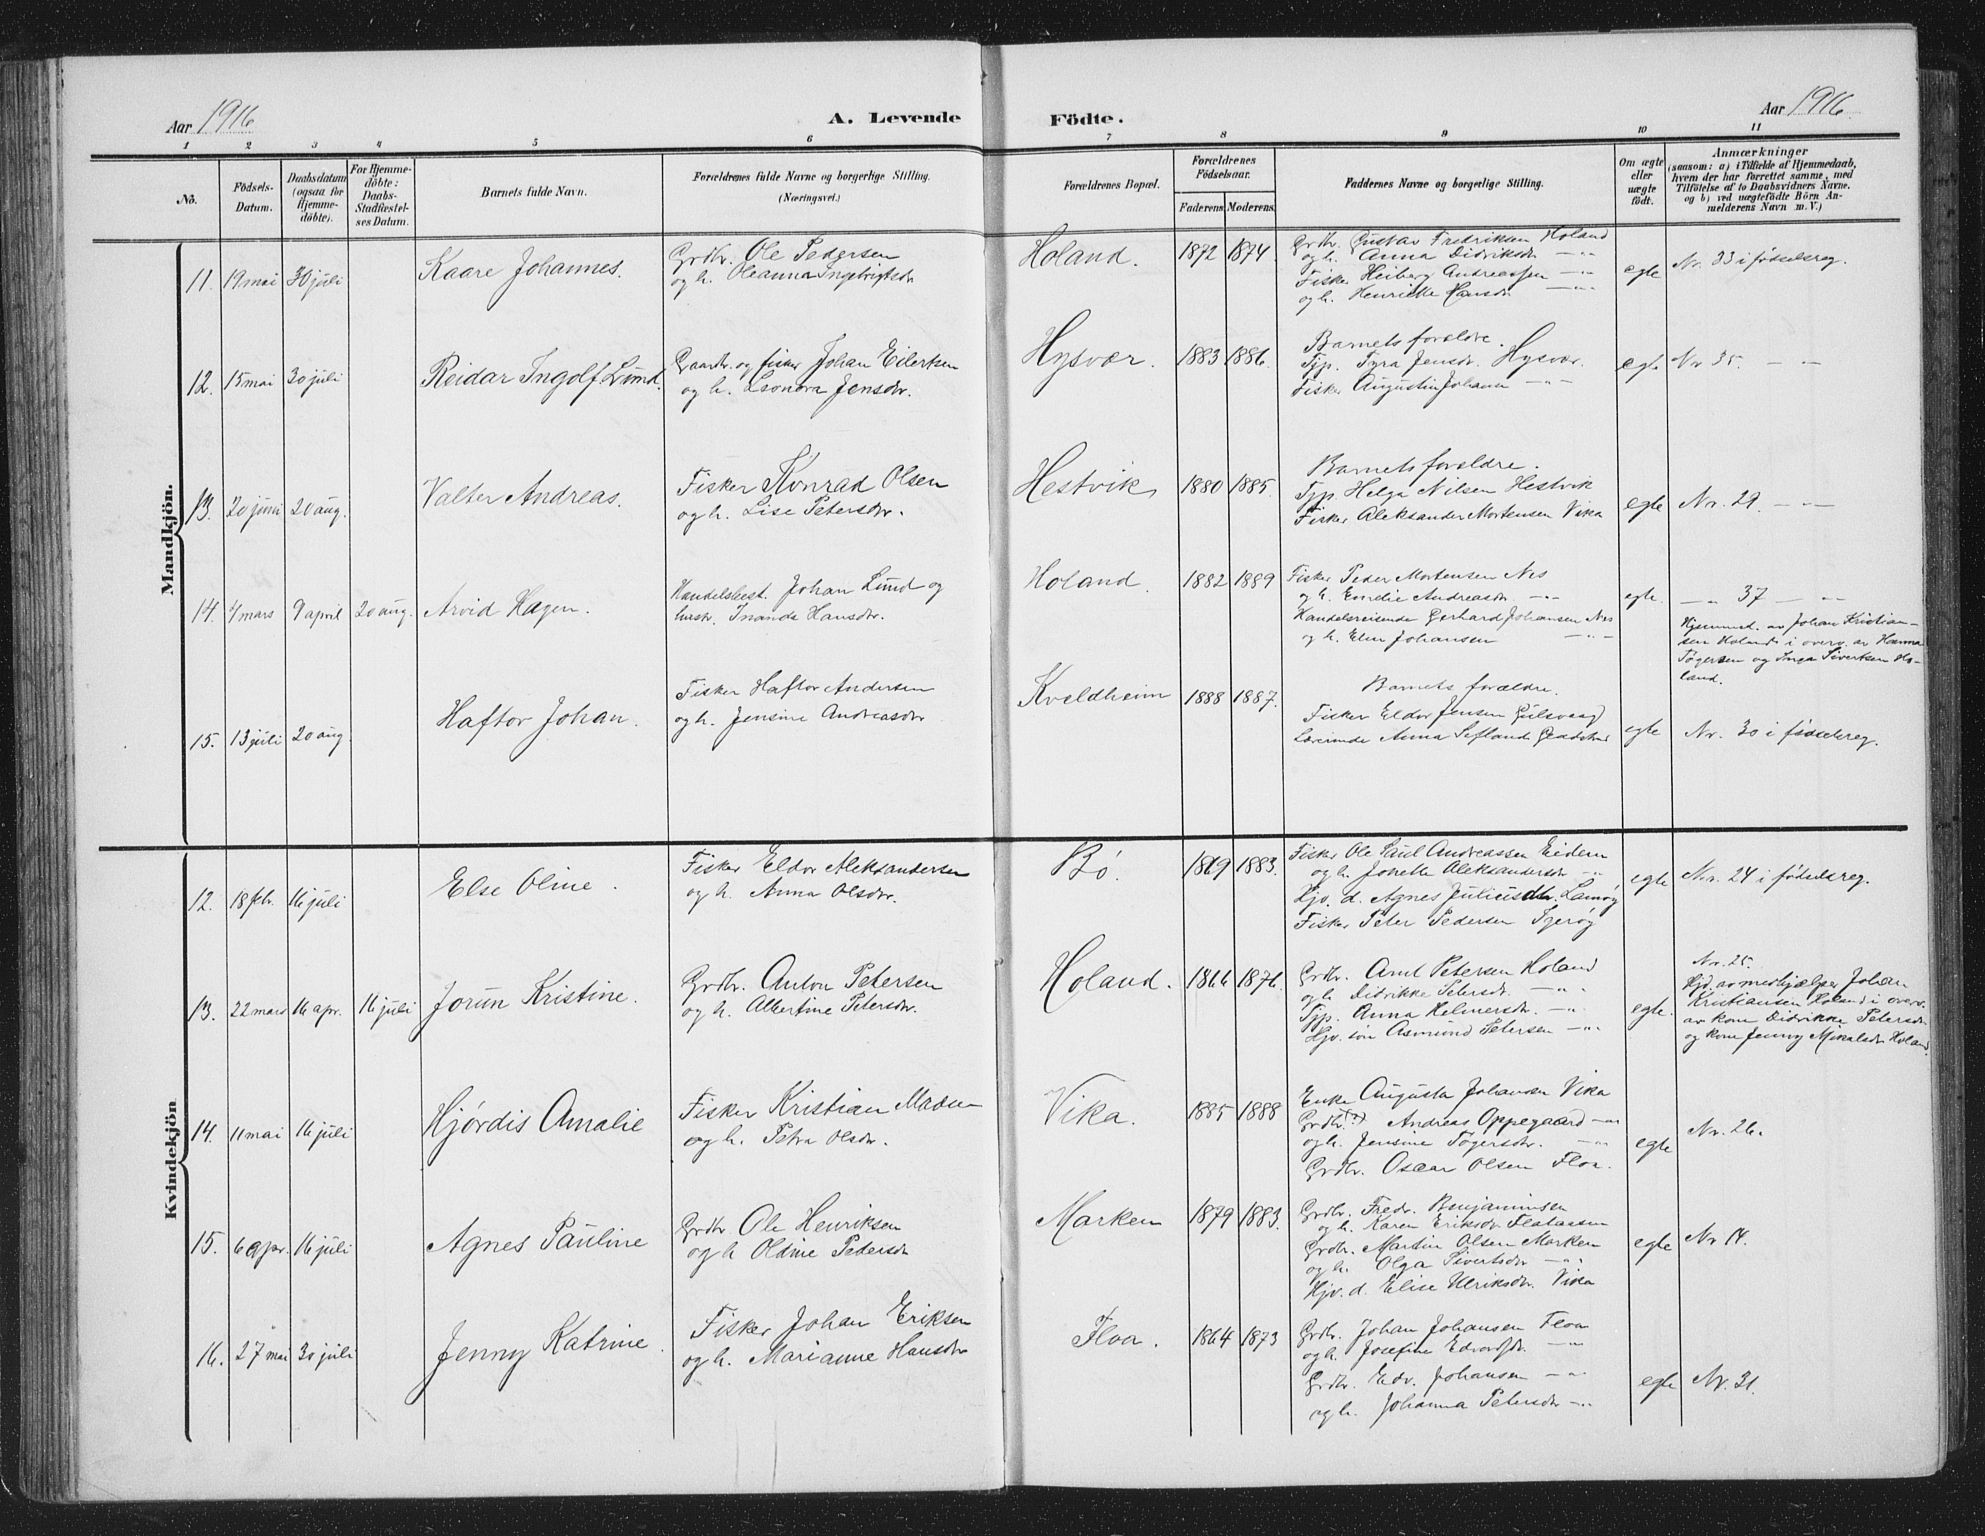 Aar 1916
A. Levende Födte.
Aar 1916.
1 2 3 4 5 6 7 8 9 10 11
No.
Födsels-Datum.
Daabsdatum (ogsaa for Hjemme-döbte).
For Hjemme-döbte: Daabs-Stadfæstel-ses Datum.
Barnets fulde Navn.
Forældrenes fulde Navne og borgerlige Stilling.
(Næringsvei.)
Forældrenes Bopæl.
Forældrenes Födselsaar.
Faderens Moderens.
Faddernes Navne og borgerlige Stilling.
Om ægte eller uægte födt.
Anmærkninger
(saasom: a) i Tilfælde af Hjemmedaab,
hvem der har forrettet samme, med
Tilföielse af to Daabsvidners Navne.
og b) ved uægtefödte Börn An-
melderens Navn m. V.)
Mandkjön.
11. 19 mai 30 juli Kaare Johannes.
Grdbr. Ole Pedersen
og h. Oleanna Ingebrigtsdr
Holand. 1872 1874
Grdbr. Gustav Fredriksen Holand
og h. Anna Didriksdr —"—
Fisker Heiberg Andreassen —"—
og h. Henrikke Hansdr —"—
egte Nr. 33 i fødselsreg.
12. 15 mai 30 juli Reidar Ingolf Lund.
Gaardbr. og fisker Johan Eilertsen
og h. Leonora Jensdr.
Hysvær. 1883 1886.
Barnets forældre.
Tjp. Tyra Jensdr. Hysvær.
Fisker Augustin Johansen —"—
egte Nr 35. — —
13. 20 juni 20 aug. Valter Andreas.
Fisker Konrad Olsen
og h. Lise Petersdr.
Hestvik 1880 1885.
Barnets forældre.
Tjp. Helga Nilsen Hestvik
Fisker Aleksander Mortensen Vika
egte Nr. 29. — "—
14. 4 mars 9 april 20 aug. Arvid Hagen.
Handelsbest. Johan Lund og
hustr. Inanda Hansdr.
Holand. 1882 1889
Fisker Peder Mortensen Nes
og h. Emelie Andreasdr. —"—
Handelsreisende Gerhard Johansen Nes
og h. Elin Johansen —"—
egte. —"— 37 — "—
Hjemmed. av Johan Kristian-
sen Holand i overv. av Hanna
Tøgersen og Inga Sivertsen Ho-
land.
15. 13 juli 20 aug. Haftor Johan.
Fisker Haftor Andersen
og h. Jensine Andreasdr.
Kveldheim 1888 1887.
Barnets forældre.
Fisker Eldor Jensen Gulsvaag
Lærerinde Anna Sefland
egte Nr. 30 i fødselsreg.
Kvindekjön
12. 18 febr. 16 juli Else Oline.
Fisker Eldor Aleksandersen
og h. Anna Olsdr.
Bø. 1869 1883.
Fisker Ole Paul Andreassen Eidem
og h. Jonette Aleksandersdr —"—
Hjv. d. Agnes Juliusdtr. Lamøy
Fisker Peter Pedersen Igerøy
egte Nr. 24 i fødselsreg.
13. 22 mars 16 apr. 16 juli Jorun Kristine.
Grdbr. Anton Petersen
og h. Albertine Petersdr.
Holand. 1866 1876.
Grdbr. Amt Petersen Holand
og h Didrikke Petersdr. —"—
Tjp. Anna Helmersdr. —"—
Hjv. søn Asmund Petersen —"—
egte.
Nr. 25.
Hjd. av medhjælper Johan
Kristiansen Holand i overv.
av kone Didrikke Petersdr
og kone Jenny Mikalsdr Holand.
14. 11 mai 16 juli Hjørdis Amalie
Fisker Kristian Madsen
og h. Petra Olsdr.
Vika. 1885 1888
Enke Augusta Johansen Vika
Grdbr.(?) Andreas Oppegaard —"—
og h. Jensine Tøgersdr. —"—
Grdbr. Oscar Olsen Floa.
egte Nr. 26.
15. 6 apr. 16 juli Agnes Pauline
Grdbr Ole Henriksen
og h Oldine Pedersdr
Marken 1879 1883.
Grdbr. Fredr. Benjaminsen
og h. Karen Eriksdr.
Grdbr. Martin Olsen Marken
og h. Olga Sivertsdr —"—
Hjv. d. Elise Ulriksdr. Vika
egte Nr 14.
16. 27 mai 30 juli Jenny Katrine.
Fisker Johan Eriksen
og h. Marianne Hansdr
Floa. 1864 1873
Grdbr. Johan Johansen Floa
og h. Josefine Edvardsdr. —"—
Grdbr. Edv. Johansen —"—
og h. Johanna Petersdr —"—
egte Nr. 31.